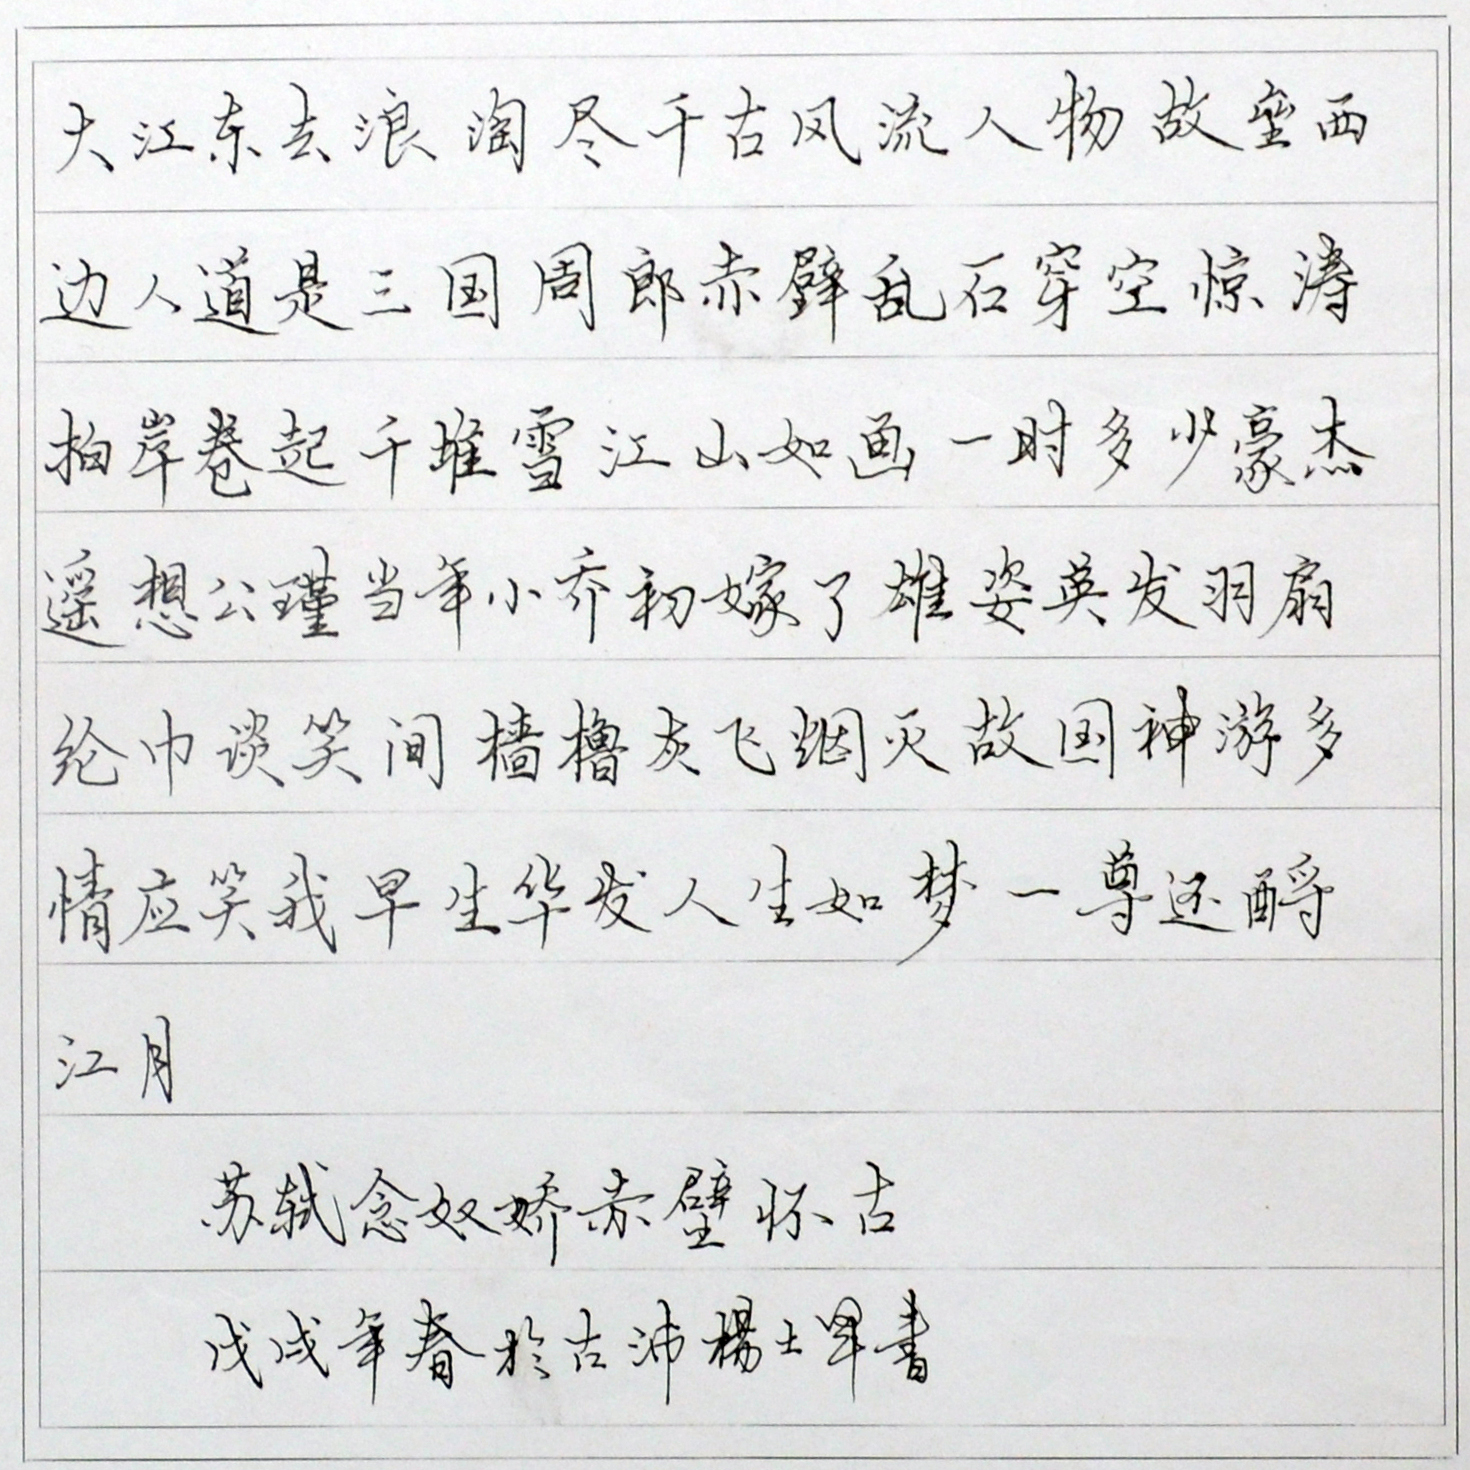 大江东去浪淘尽千古风流人物故垒西
边人道是三国周郎赤壁乱石穿空惊涛
拍岸卷起千堆雪江山如画一时多少豪杰
遥想公瑾当年小乔初嫁了雄姿英发羽扇
纶巾谈笑间樯橹灰飞烟灭故国神游多
情应笑我早生华发人生如梦一尊还酹
江月
苏轼念奴娇赤壁怀古
戊戌年春於古沛楊士早書